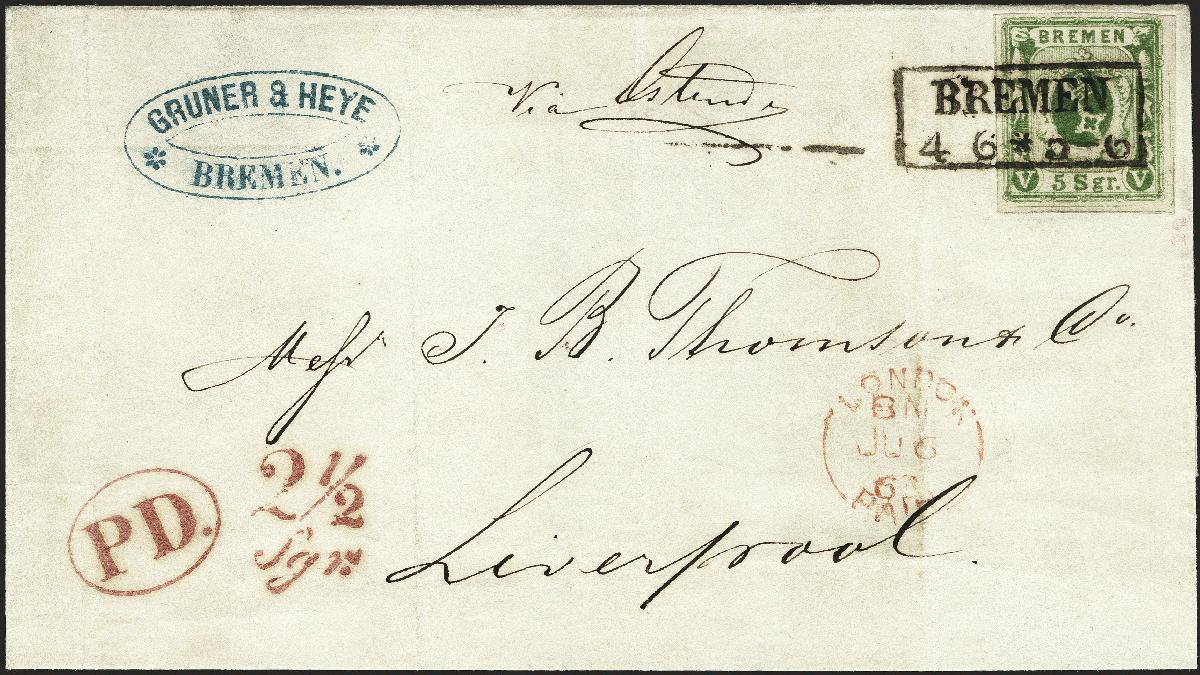 GRUNER & HEYE
BREMEN.
Via Ostende
BREMEN
BREMEN
4 6 * 5 6
V 5 Sgr. V
Messrs J. B. Thomson & Co.
LONDON
BN
JU 6
PAID
Liverpool.
PD.
2 1/2
Sgr